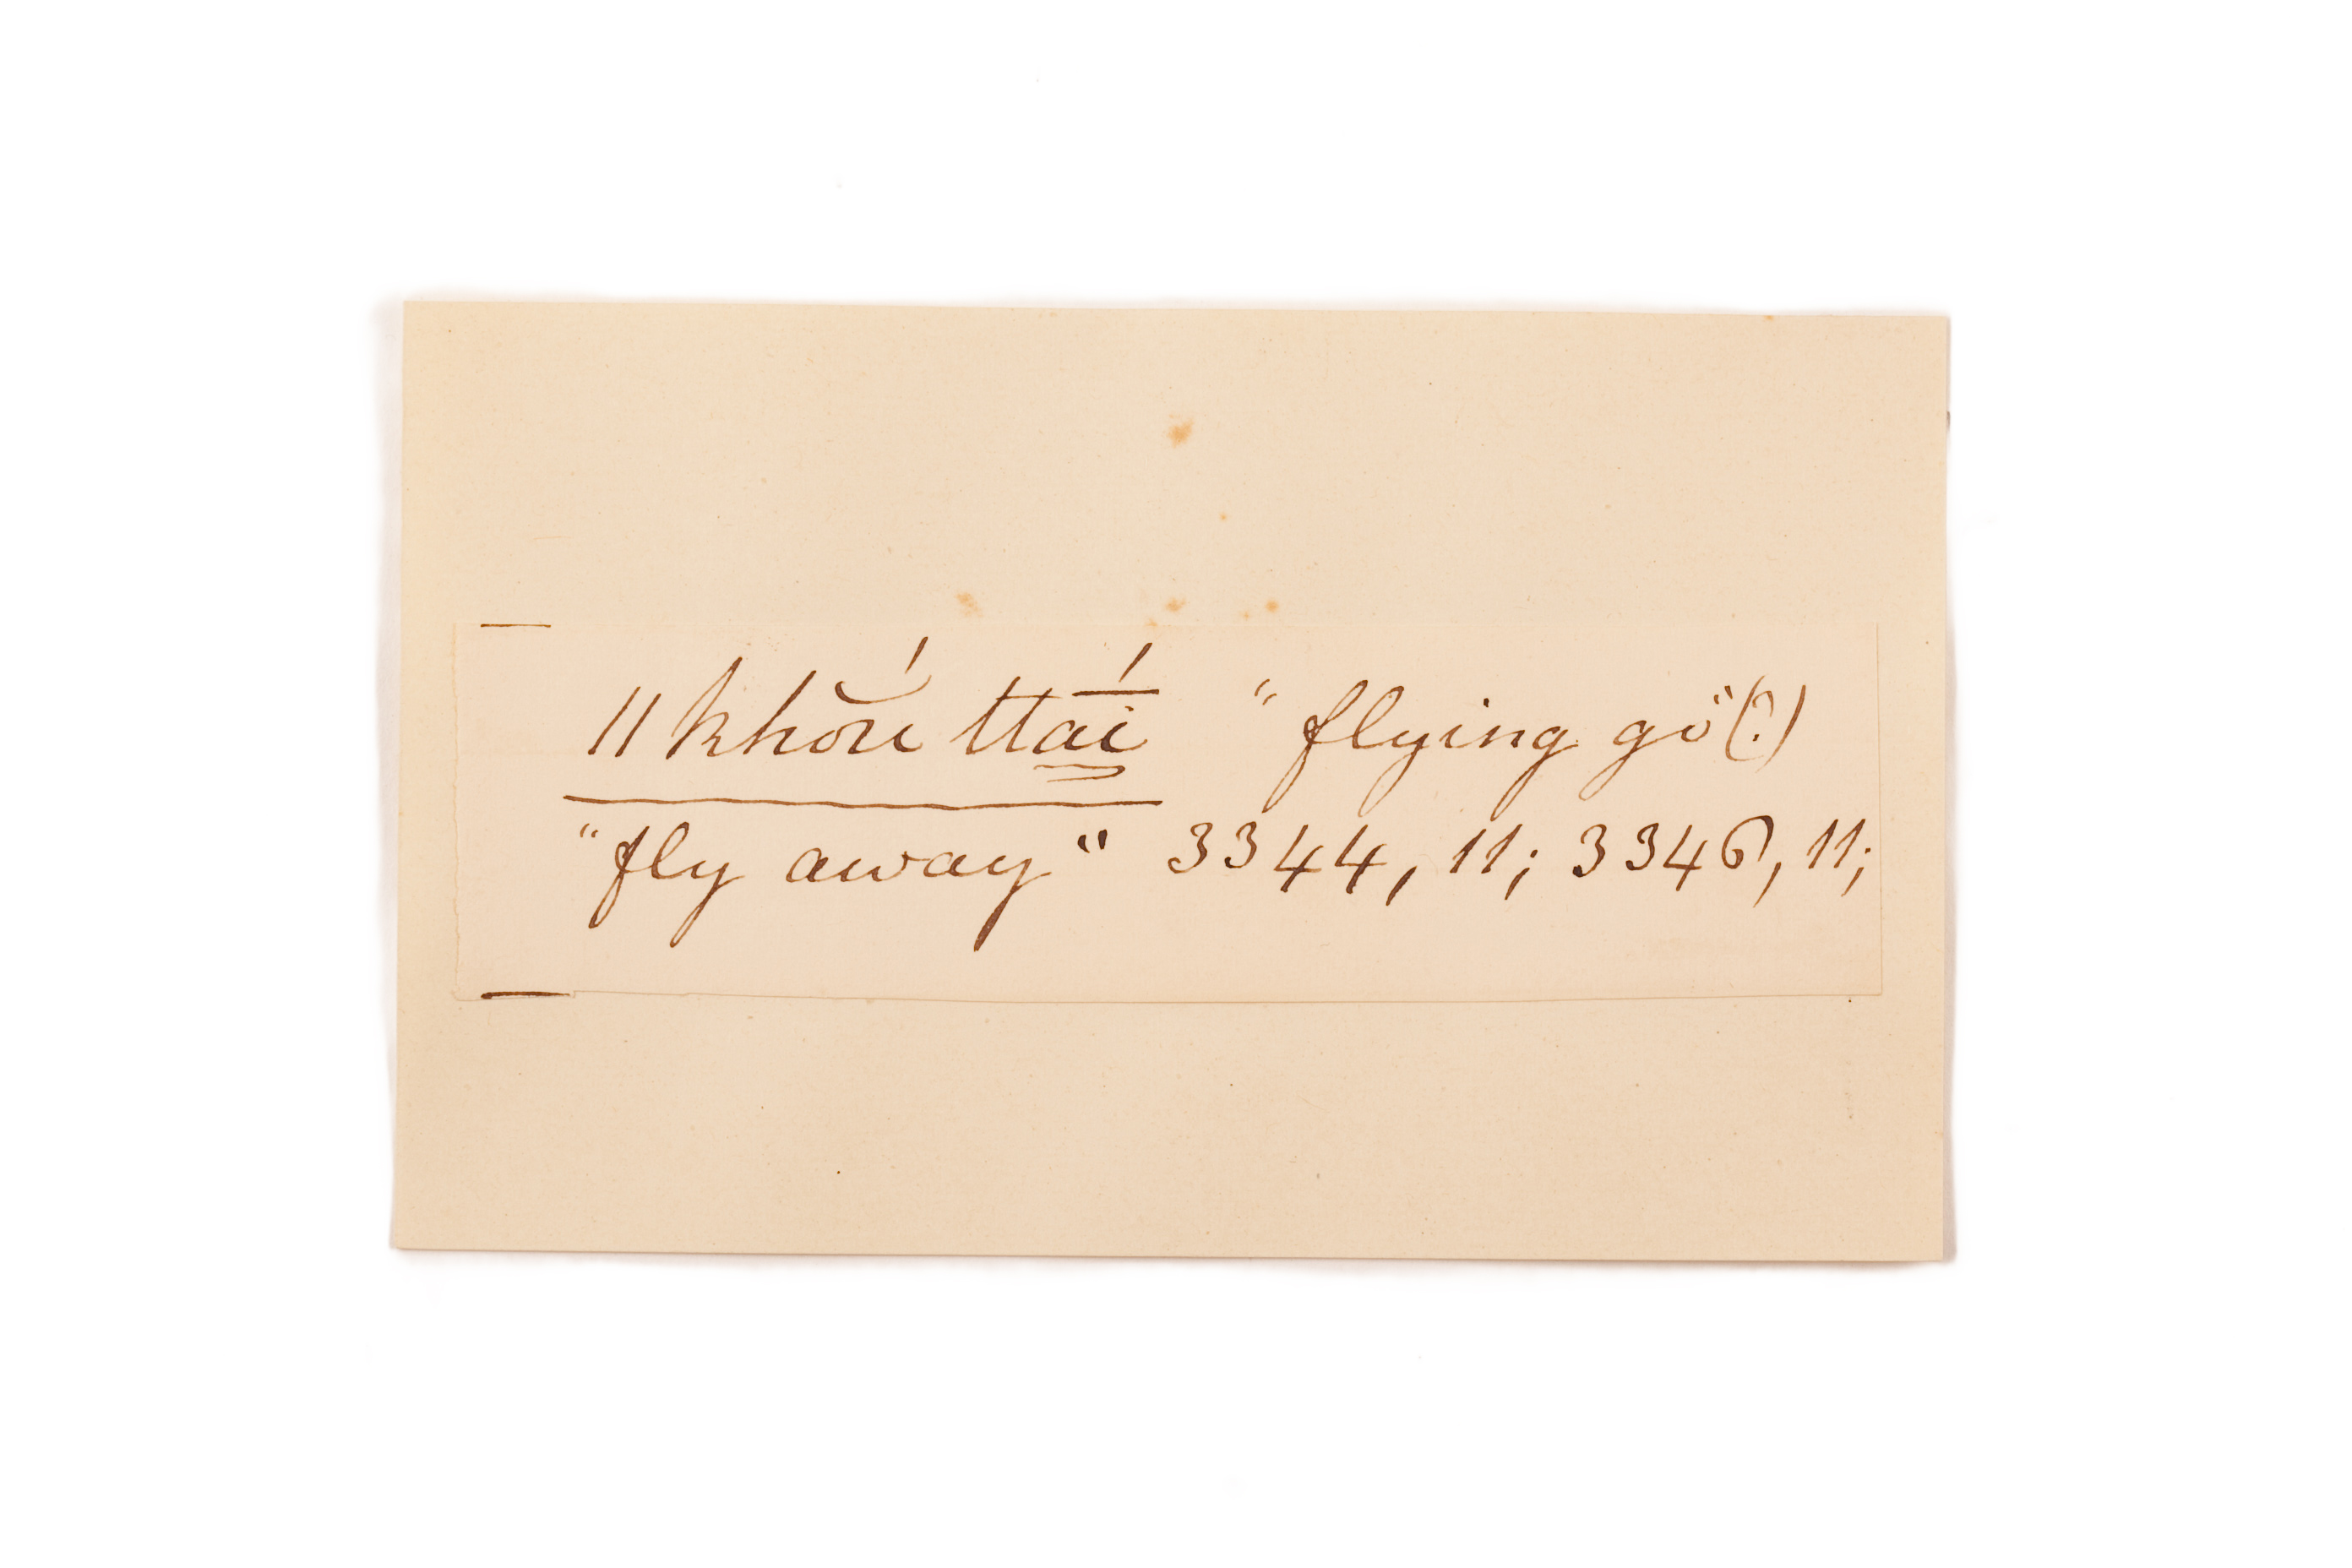 ǁkhŏ́ë ttā́i̳ “flying go”(?)
“fly away” 3344, 11; 3346, 11;